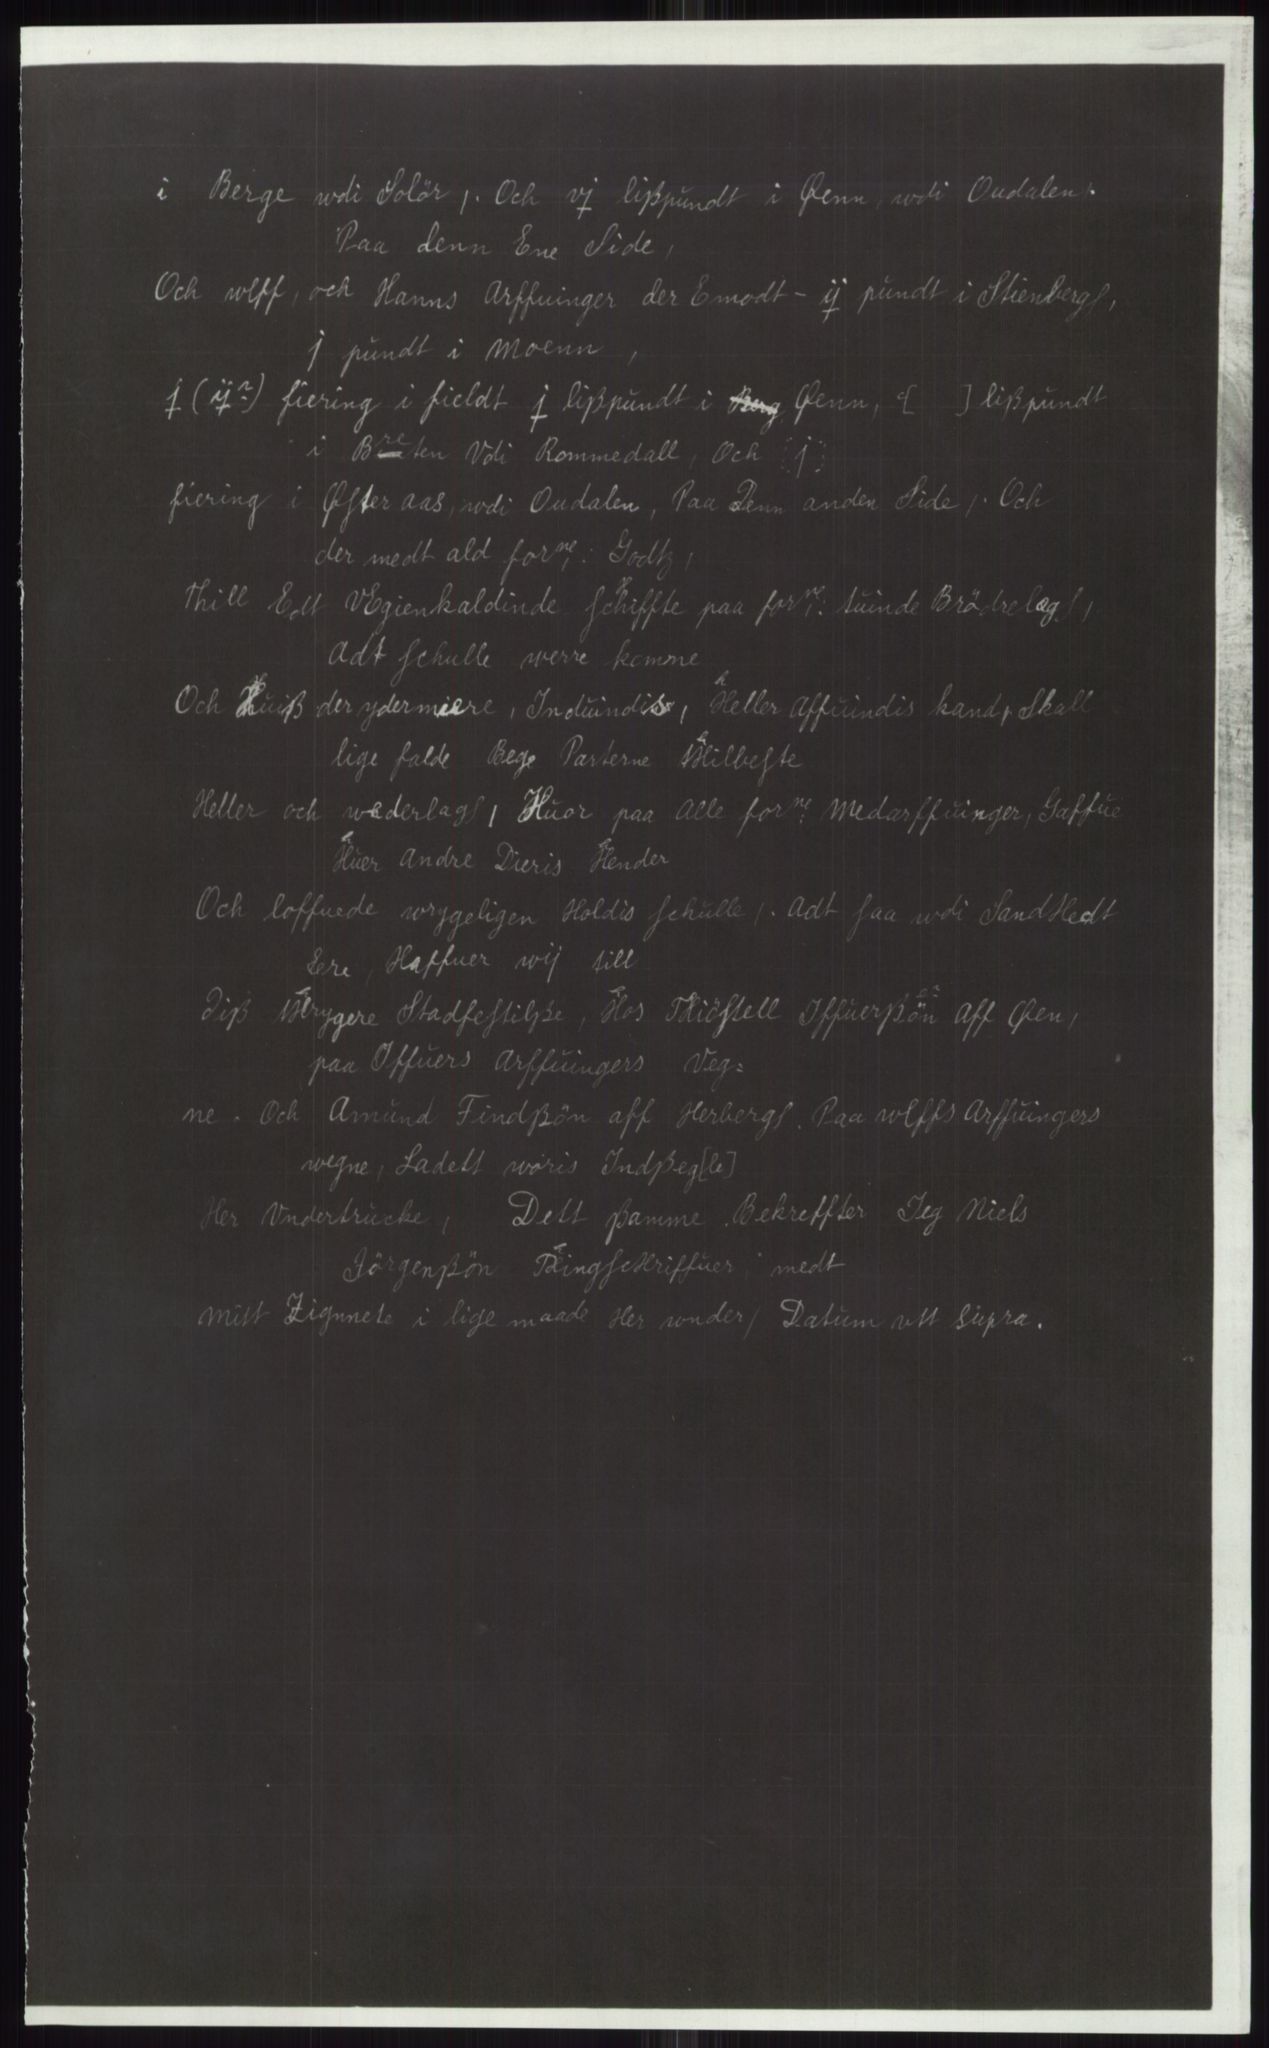 i Berge wdi Solör, . Och vj lißpundt i Øenn, wdi Oudalen, .
Paa denn Ene Side,
Och wlff, och Hanns Arffuinger der Emodt - ij pundt i Stienbergs,
j pundt i Moenn,
j (ij?) fiering i fieldt j lißpundt i Berg Øenn, [ ] lißpundt
i Breten Vdi Rommedall, Och [j]
fiering i Øster aas, wdi Oudalen, Paa Denn anden Side, . Och
der medt ald forne: Godtz,
thill Ett VEgienkaldinde schiffte paa forne: tuinde Brödrelags,
Adt schulle werre komme
Och Huiß der ydermiere, Induindis, Heller Affuindis kand, Skall
lige falde Bege Parterne thilbeste
Heller och wederlags, Huor paa Alle forne: Medarffuinger, Gaffue
Huer Andre Dieris Hender
Och loffuede wrygeligen Holdis schulle, . Adt saa wdi SandHedt
Ere, Haffuer wij till
diß tHrygere Stadfestilße, Hos Thiöstell Iffuerßön Aff Øen,
paa Iffuers Arffuingers Veg=
ne. Och Amund Findßön aff Herbergs. Paa wlffs Arffuingers
wegne, Ladett woris Indßeg[le]
Her Vndertrucke, Dett ßamme Bekreffter Jeg Niels
Jörgenßön TingscHriffuer, medt
mitt Zignnete i lige maade Her wnder, Datum vtt supra.